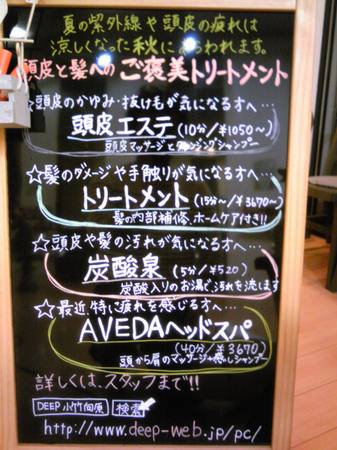 夏の紫外線や頭皮の疲れは
涼しくなった秋にあらわれます。
頭皮と髪へのご褒美トリートメント
☆頭皮のかゆみ・抜け毛が気になる方へ…
頭皮エステ(10分/¥1050~)
頭皮マッサージとクレンジングシャンプー
☆髪のダメージや手触りが気になる方へ…
トリートメント(15分~/¥3670~)
髪の内部補修、ホームケア付き!!
☆頭皮や髪の汚れが気になる方へ…
炭酸泉(5分/¥520)
炭酸入りのお湯で、汚れを流します
☆最近特に疲れを感じる方へ…
AVEDAヘッドスパ
(40分/¥3670)
頭から肩のマッサージ+癒しシャンプー
詳しくは、スタッフまで!!
DEEP 小竹向原 検索
http://www.deep-web.jp/pc/